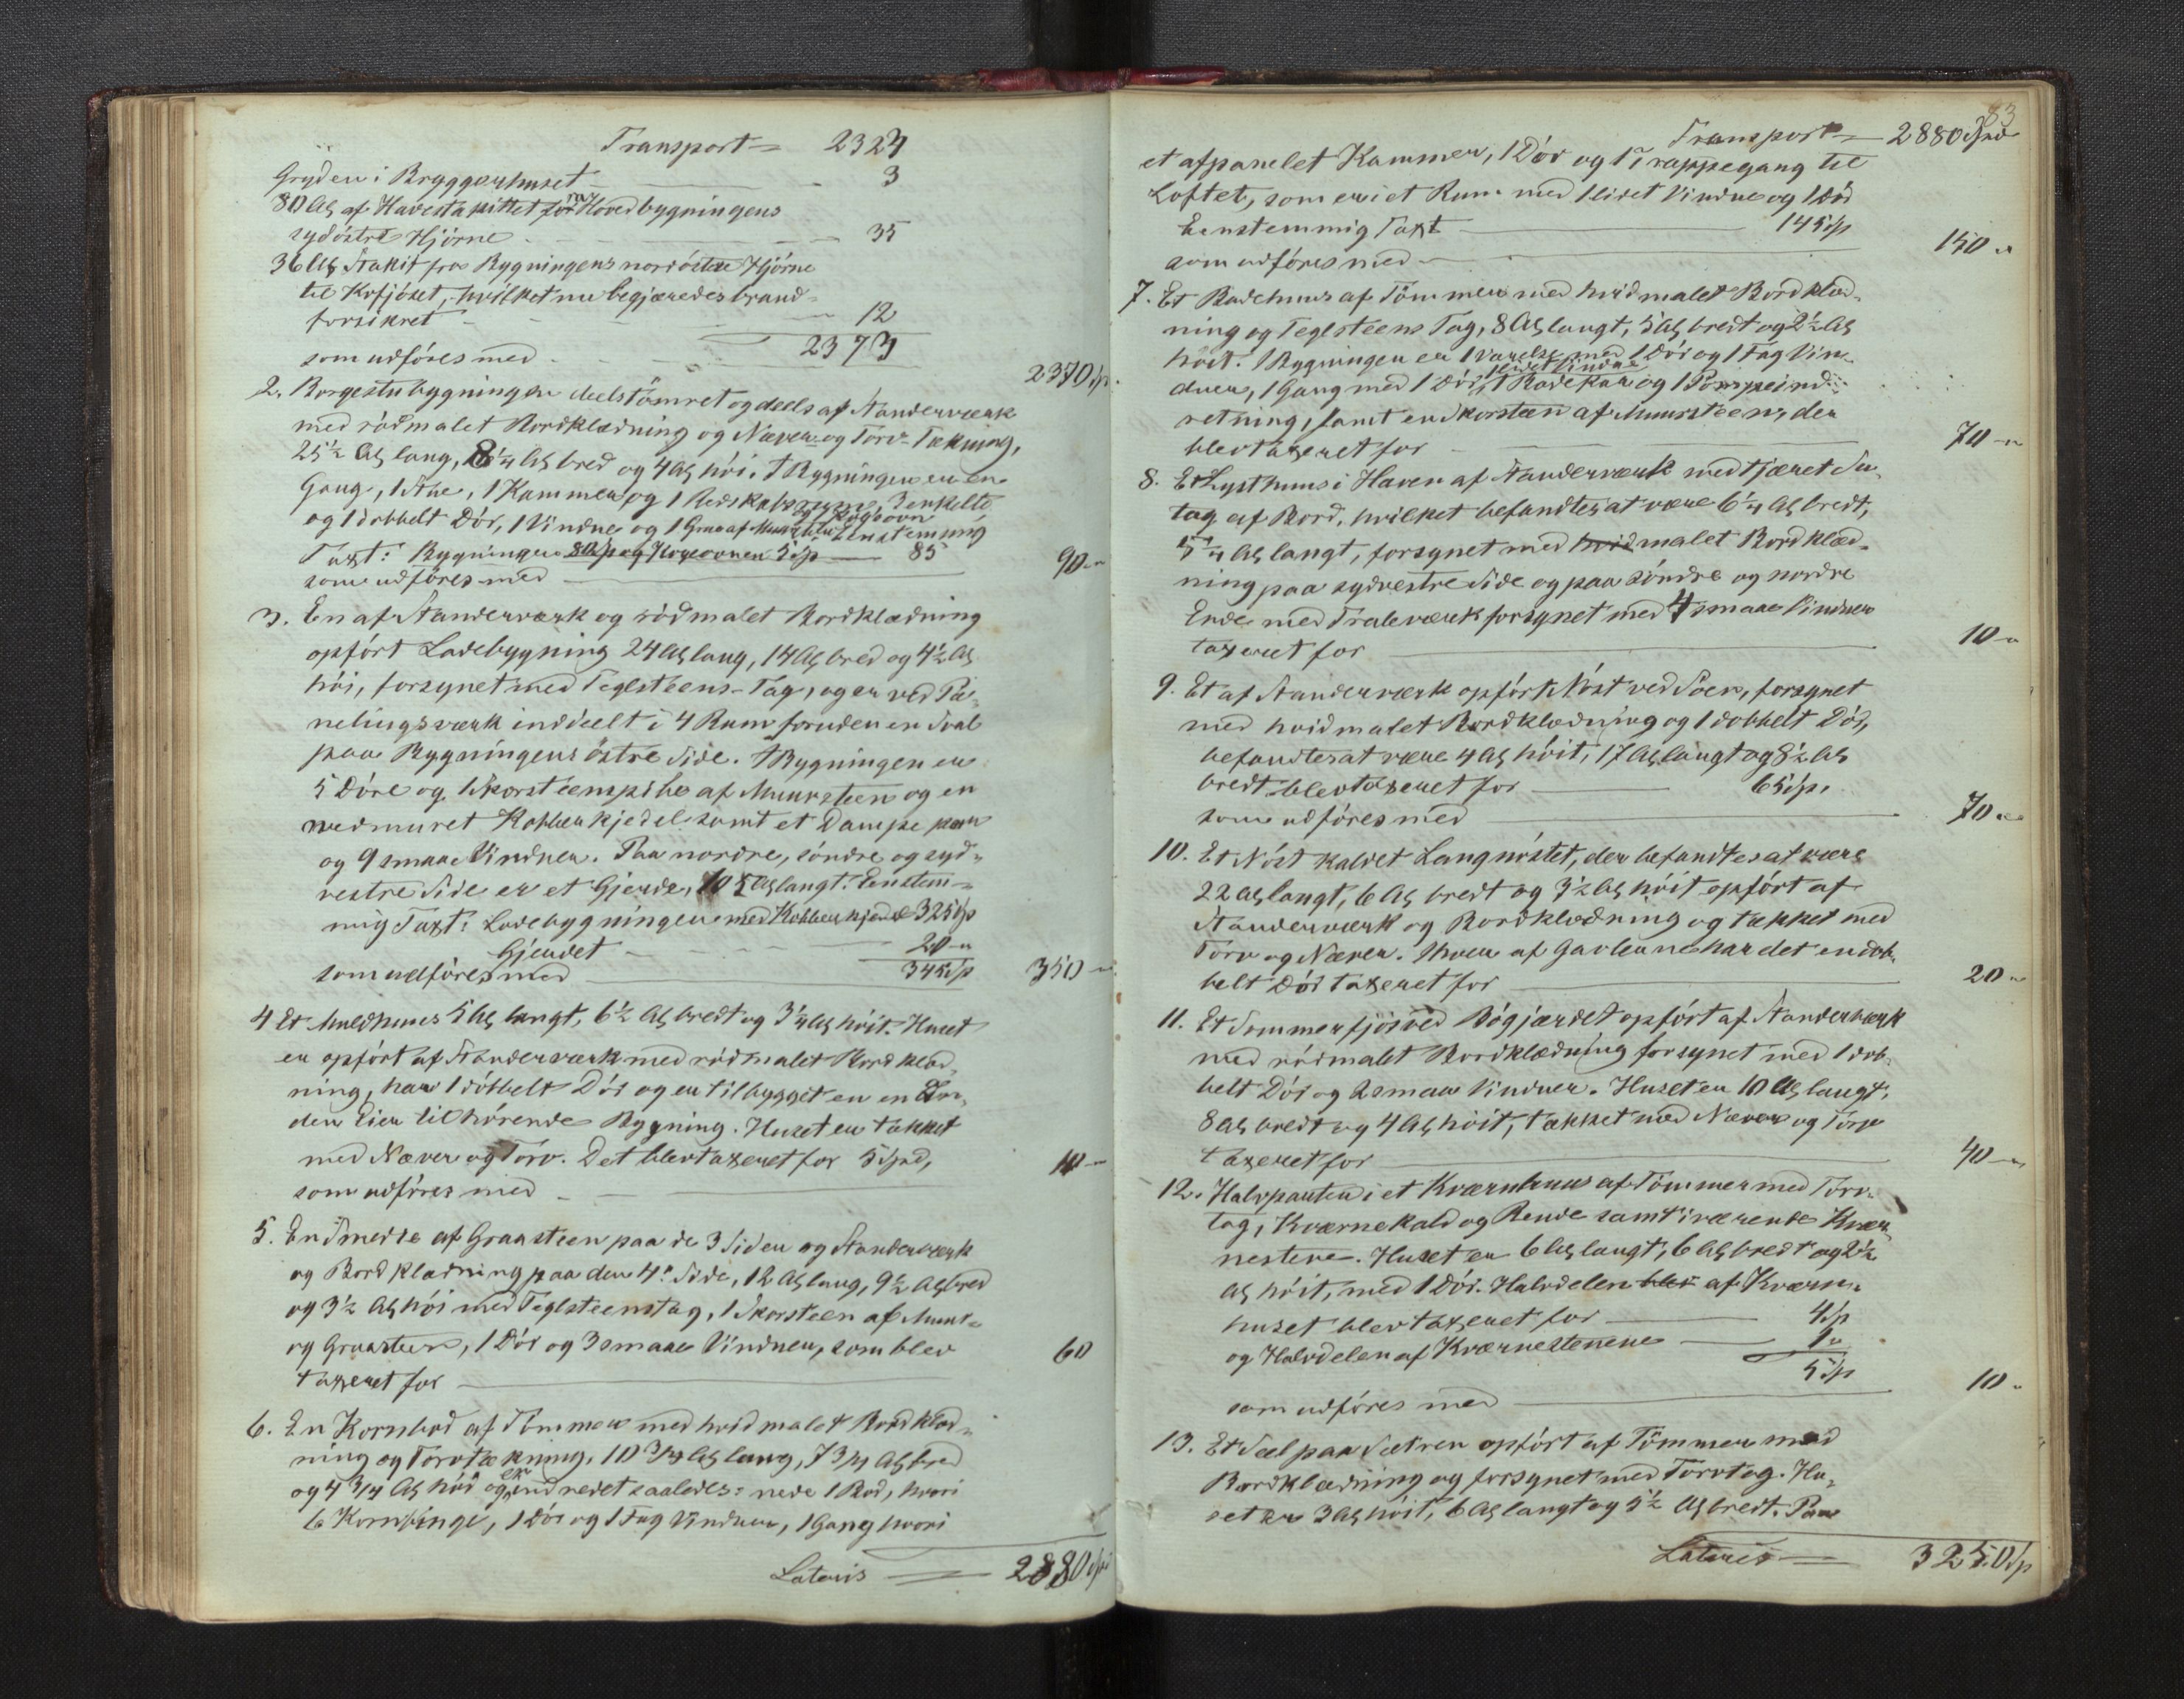 Transport = 2324
Gryden i Bryggerhuset — 3
80 Al. af Havestakittet fra Hovedbygningens
sydöstre Hjörne — 35
36 Al. Stakit fra Bygningens nordöstre Hjörne
til Kofjöset, hvilket nu begjæredes brand-
forsikret — 12
2373
som udföres med — 2370 Sp.
2. Borgestubygningen deels tömret og deels af Standerværk
med rödmalet Bordklædning og Næver og Törv-Tækning,
25½ Al. lang, 8¼ Al. bred og 4 Al. höi. I Bygningen er en
Gang, 1 Stue, 1 Kammer og 1 Redskabsrum, 3 enkelte
og 1 dobbelt Dör, 1 Vindue og 1 Grue af og Kogeovn Eenstemmig
Taxt: Bygningen 80 Sp og Kogeovnen 5 Sp — 85
som udföres med — 90 "
3. En af Standerværk og rödmalet Bordklædning
opfört Ladebygning 24 Al. lang, 14 Al. bred og 4½ Al.
höi, forsynet med Teglsteens-Tag, og er ved Pa-
nelingsværk inddeelt i 4 Rum foruden en Sval
paa Bygningens östre Side. I Bygningen er
5 Döre og 1 Skorsteenspibe af Muursteen og en
nedmuret Kobberkjedel samt et Dampekar
og 9 smaae Vinduer. Paa nordre, söndre og syd-
vestre Side er et Gjerde, 105 Al. langt. Eenstem-
mig Taxt: Ladebygningen med Kobberkjedel 325 Sp
Gjerdet — 20 "
345 Sp
som udföres med — 350 "
4 Et Smedhuus 5 Al. langt, 6½ Al. bredt og 3¼ Al. höit. Huset
er opfört af Standerværk med rödmalet Bordklæd-
ning, har 1 dobbelt Dör og er tilbygget en en An-
den Eier tilhörende Bygning. Huset er tækket
med Næver og Törv. Det blev taxeret for 5 Spd,
som udföres med — 10 "
5. En Smedie af Graasteen paa de 3 Sider og Standerværk
og Bordklædning paa den 4de Side, 12 Al. lang, 9½ Al. bred
og 3½ Al. höi med Teglsteenstag, 1 Skorsteen af Muur-
og Graasteen, 1 Dör og 3 smaae Vinduer, som blev
taxeret for — 60
6. En Kornbod af Tömmer med hvidmalet Bordklæd-
ning og Torvtækning, 10¾ Al. lang, 7¾ Al. bred
og 4¾ Al. höi og er indredet saaledes: nede 1 Bod, hvori
6 Kornbinge, 1 Dör og 1 Fag Vinduer, 1 Gang hvori
Lateris = 2880 Sp
83
Transport = 2880 Spd
et afpanelet Kammer, 1 Dör og 1 Trappegang til
Loftet, som er i et Rum med 1 lidet Vindue og 1 Dör
Eenstemmig Taxt — 145 Sp
som udföres med — 150 "
7. Et Badehuus af Tömmer med hvidmalet Bordklæd-
ning og Teglsteens Tag, 8 Al. langt, 5 Al. bredt og 2½ Al.
höit. I Bygningen er 1 Værelse med 1 Dör og 1 Fag Vin-
duer, 1 Gang med 1 Dör, 1 lidet Vindue 1 Badekar og 1 Pompeind-
retning, samt en Skorsteen af Muursteen, der
blev taxeret for — 70 "
8. Et Lysthuus i Haven af Standerværk med tjæret Su-
tag af Bord, hvilket befandtes at være 6¼ Al. bredt,
5¼ Al. langt, forsynet med hvidmalet Bordklæd-
ning paa sydvestre Side og paa söndre og nordre
Ende med Traleværk forsynet med 4 smaae Vinduer
taxeret for — 10 "
9. Et af Standerværk opfört Nöst ved Söen, forsynet
med hvidmalet Bordklædning og 1 dobbelt Dör,
befandtes at være 4 Al. höit, 17 Al. langt og 8½ Al.
bredt blev taxeret for — 65 Sp.
som udföres med — 70 "
10. Et Nöst kaldet Langnöstet, der befandtes at være
22 Al. langt, 6 Al. bredt og 3½ Al. höit opfört af
Standerværk og Bordklædning og tækket med
Torv og Næver. I hver af Gavlerne har det en dob-
belt Dör taxeret for — 20 "
11. Et Sommerfjös ved Bögjærdet opfört af Standerværk
med rödmalet Bordklædning forsynet med 1 dob-
belt Dör og 2 smaae Vinduer. Huset er 10 Al. langt,
8 Al. bredt og 4 Al. höit, tækket med Næver og Törv
taxeret for — 40 "
12. Halvparten i et Kværnhuus af Tömmer med Torv-
tag, Kværnekald og Rende samt iværende Kvær-
nestene. Huset er 6 Al. langt, 6 Al. bredt og 2½
Al. höit, med 1 Dör. Halvdelen blev af Kværn-
huset blev taxeret for — 4 Sp
og Halvdelen af Kværnestenene — 1 "
5 Sp
som udföres med — 10 "
13. Et Sæl paa Sætren opfört af Tömmer med
Bordklædning og forsynet med Torvtag. Hu-
set er 3 Al. höit, 6 Al. langt og 5½ Al. bredt. Paa
Lateris = 3250 Sp